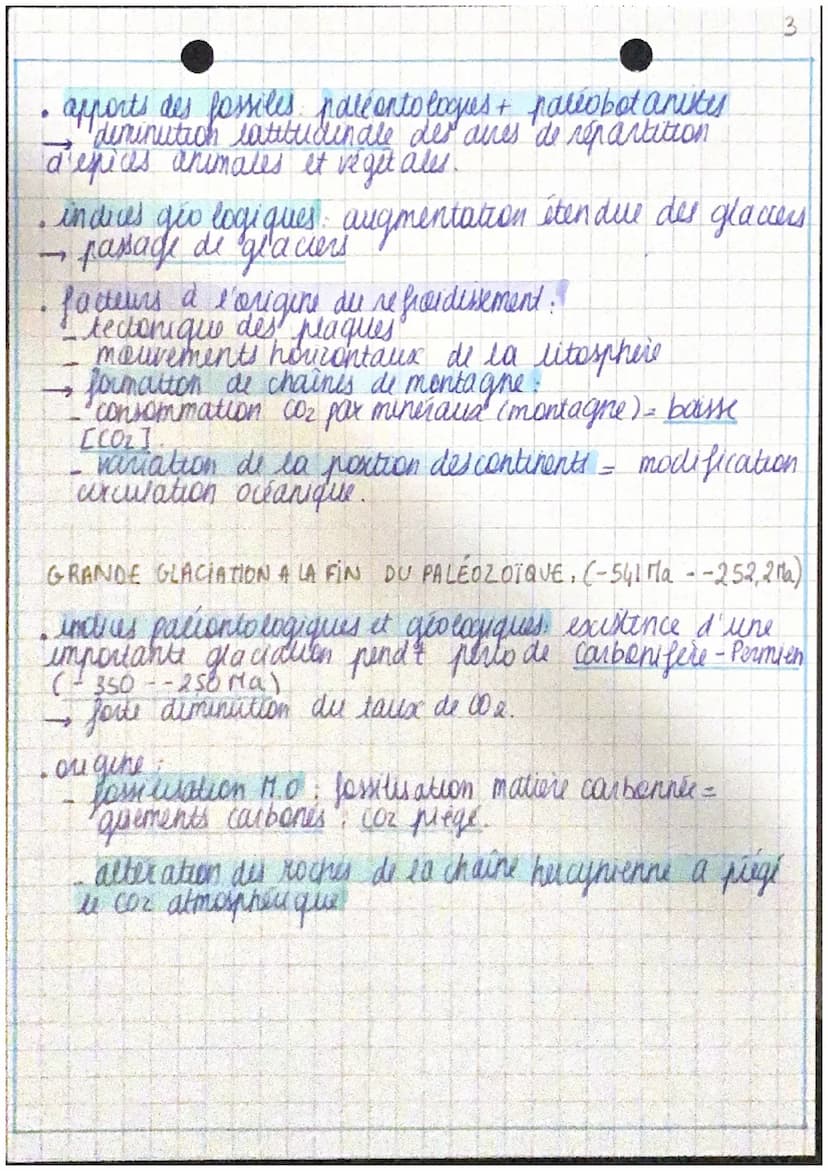 3
. apports des fossiles : paléontologues + paléobotanistes
→ diminution latitudinale des aires de répartition
d'epices animales et végétales.
. indices géologiques : augmentation étendue des glaciers
→ passage de glaciers
. facteurs à l'origine du refroidissement :
- tectonique des plaques
- mouvements horizontaux de la litosphère
→ formation de chaînes de montagne :
- consommation CO2 par minéraux (montagne) = baisse
[CO2].
- variation de la position des continents = modification
circulation océanique.
GRANDE GLACIATION A LA FIN DU PALÉOZOÏQUE. (-541 Ma - -252,2 Ma)
. indices paléontologiques et géologiques : existence d'une
importante glaciation pendt période Carbonifère - Permien
(- 350 - - 250 Ma)
→ forte diminution du taux de CO2.
. origine :
- fossilisation M.O : fossilisation matière carbonnée =
gisements carbonés : CO2 piégé.
- altération des roches de la chaîne hercynienne a piégé
le CO2 atmosphérique